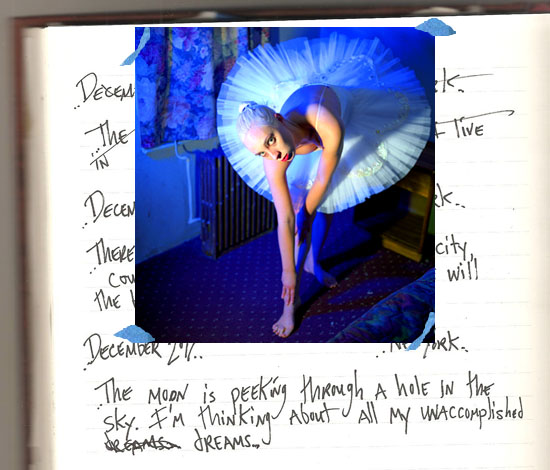 Decem rk..
..The live
in
Decem rk..
..There city,
cou will
the
December York..
..The moon is peeking through a hole in the
sky. I'm thinking about all my unaccomplished
dreams.. dreams..